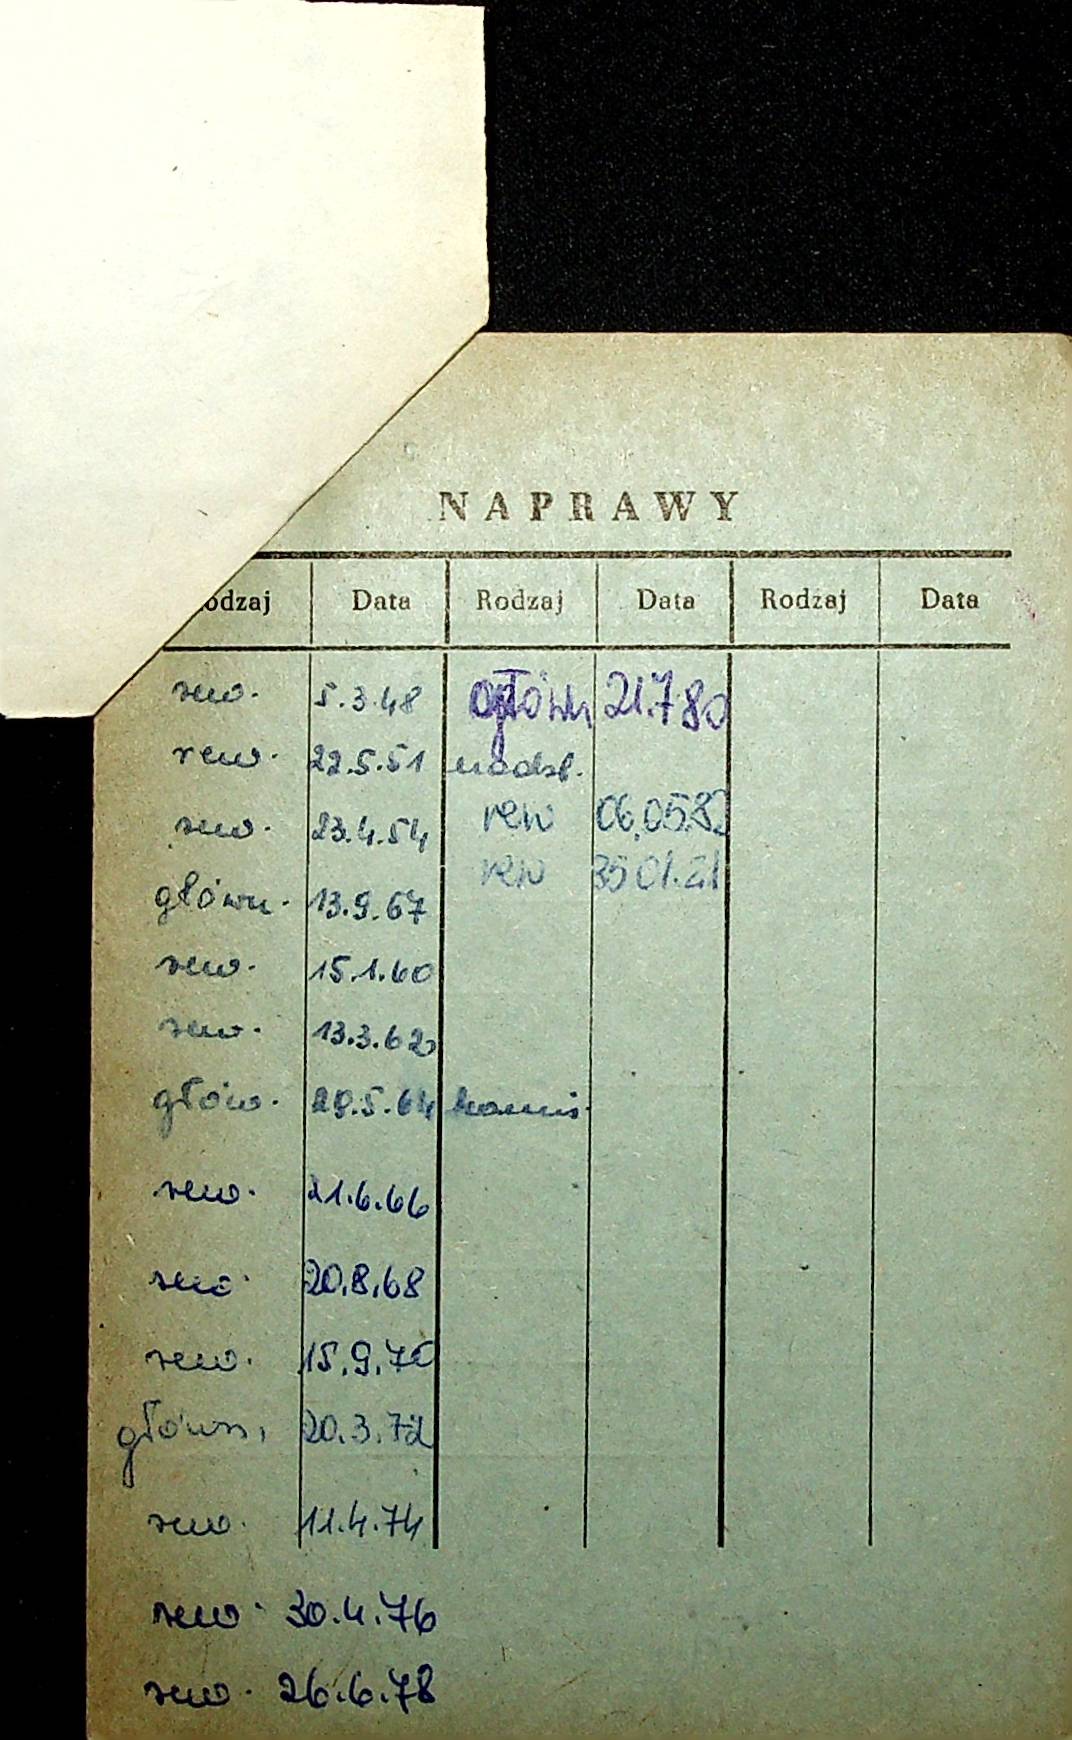 NAPRAWY
odzaj Data Rodzaj Data Rodzaj Data
rew. 5.3.48 główn 21.7.80
rew. 22.5.51
rew. 23.4.54 rew 06.05.82
główn. 13.9.67 rew
rew. 15.1.60
rew. 13.3.62
głów. 29.5.64
rew. 21.6.66
rew. 20.8.68
rew. 15.9.70
główn. 20.3.72
rew. 11.4.74
rew. 30.4.76
rew. 26.6.78